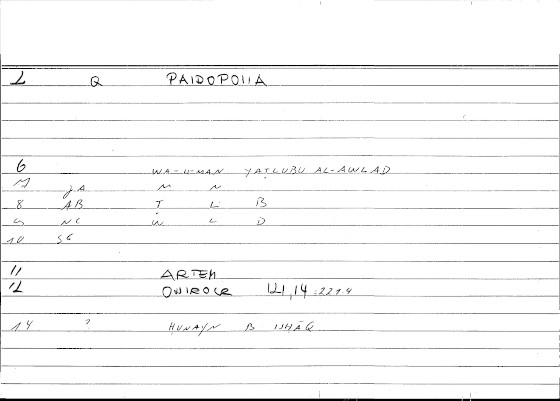 1 Q PAIDOPOIIA
6 WA-LI-MAN YAṬLUBU AL-AWLAD
7 JA M N
8 AB Ṭ L B
9 NC W L D
10 SG
11 ARTEM
12 ONIROCR 121,14 :221.4
14 ? HUNAYN B ISHĀQ